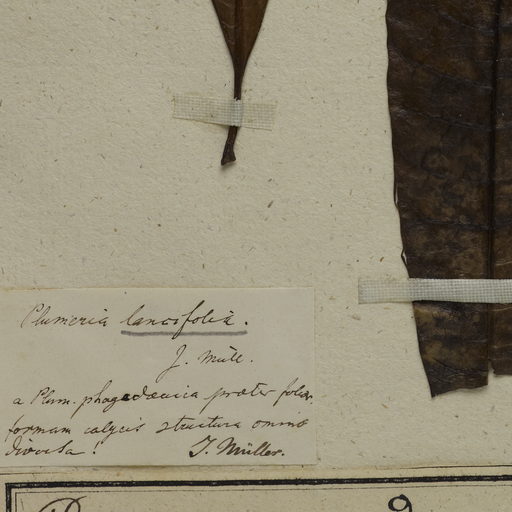 Plumeria lancifolia.
J. Müll.
a Plum. phagedaenica praeter folior.
formam calycis structura omnino
diversa! J. Müller.
9